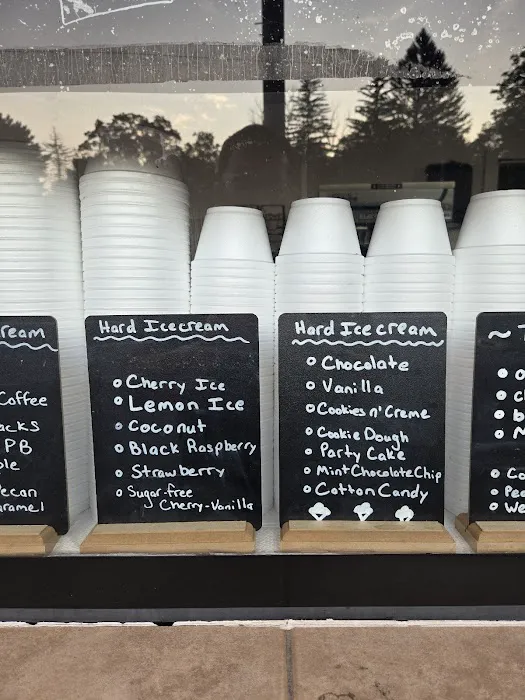 Coffee
Pecan
Hard Icecream
Cherry Ice
Lemon Ice
Coconut
Black Raspberry
Strawberry
Sugar-free
Cherry-Vanilla
Hard Icecream
Chocolate
Vanilla
Cookies n' Creme
Cookie Dough
Party Cake
Mint Chocolate Chip
Cotton Candy